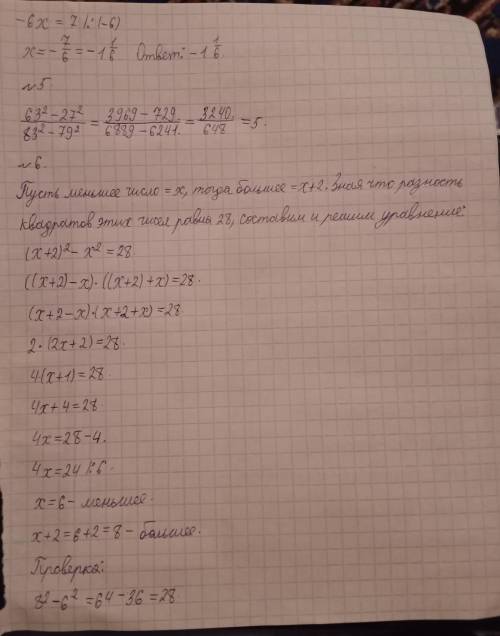 -6x = 7 |:(-6)
x = -7/6 = -1 1/6 Ответ: -1 1/6.
№5
63²-27² / 83²-79² = 3969-729 / 6889-6241 = 3240 / 648 = 5.
№6.
Пусть меньшее число = x, тогда большее = x+2. Зная что разность
квадратов этих чисел равна 28, составим и решим уравнение:
(x+2)² - x² = 28.
((x+2)-x)·((x+2)+x)=28.
(x+2-x)·(x+2+x)=28
2·(2x+2)=28.
4(x+1)=28.
4x+4=28
4x=28-4.
4x=24 |:6.
x=6 - меньшее.
x+2=6+2=8 - большее.
Проверка:
8²-6²=64-36=28